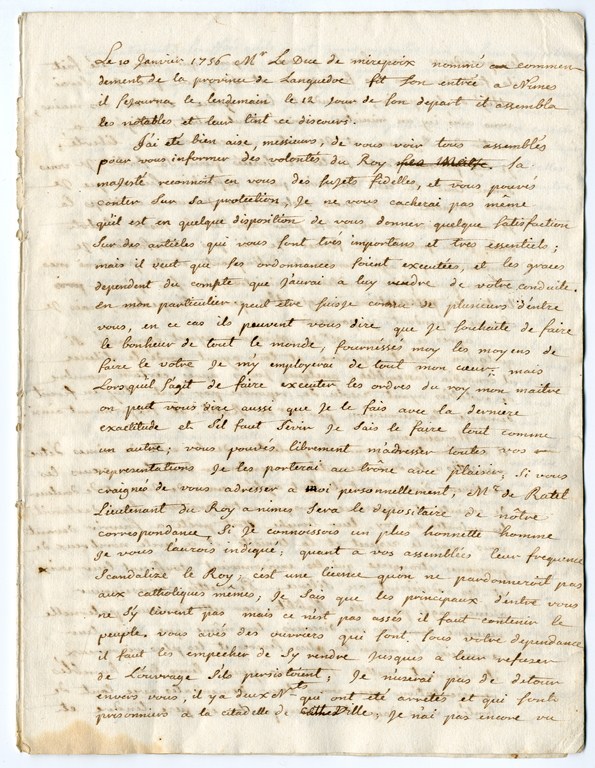 Le 10 Janvier 1756 Mr Le Duc de mirepoix nommé au commen-
dement de la province de Languedoc fit son entrée a Nimes
il sejourna le lendemain le 12 Jour de son depart il assembla
les notables et leur tint ce discours.
J'ai eté bien aise, messieurs, de vous voir tous assemblés
pour vous informer des volontés du Roy Sa
majesté reconnoit en vous des sujets fidelles, et vous pouvés
conter sur sa protection, Je ne vous cacherai pas même
qu'il est en quelque disposition de vous donner quelque satisfaction
sur des articles qui vous sont très importans et tres essentiels;
mais il veut que ses ordonnances soient executées, et les graces
dependent du compte que J'aurai a luy rendre de votre conduite.
en mon particulier peut etre suis je connu de plusieurs d'entre
vous, en ce cas ils peuvent vous dire que Je souhaite de faire
le bonheur de tout le monde, fournissés moy les moyens de
faire le votre Je m'y employerai de tout mon cœur; mais
Lorsqu'il s'agit de faire executer les ordres du roy mon maitre
on peut vous dire aussi que Je le fais avec la derniere
exactitude et s'il faut sevir Je sais le faire tout comme
un autre; vous pouvés librement m'adresser toutes vos
representations Je les porterai au trone avec plaisir; Si vous
craignés de vous adresser a moi personnellement, Mr de Ratel
Lieutenant du Roy a nimes sera le depositaire de nôtre
correspondance. Si Je connoissois un plus honnette homme
Je vous l'aurois indiqué; quant a vos assemblées leur frequence
scandalize le Roy; c'est une licence qu'on ne pardonneroit pas
aux catholiques memes; Je sais que les principaux d'entre vous
ne s'y livrent pas mais ce n'est pas assés il faut contenir le
peuple. vous avés des ouvriers qui sont sous votre dependance
il faut les empecher de s'y rendre Jusques a leur refuser
de L'ouvrage s'ils persistoient; Je n'userai pas de detour
envers vous, il y a deux qui ont eté arretés et qui sont
prisonniers a la citadelle de ville, Je n'ai pas encore vu